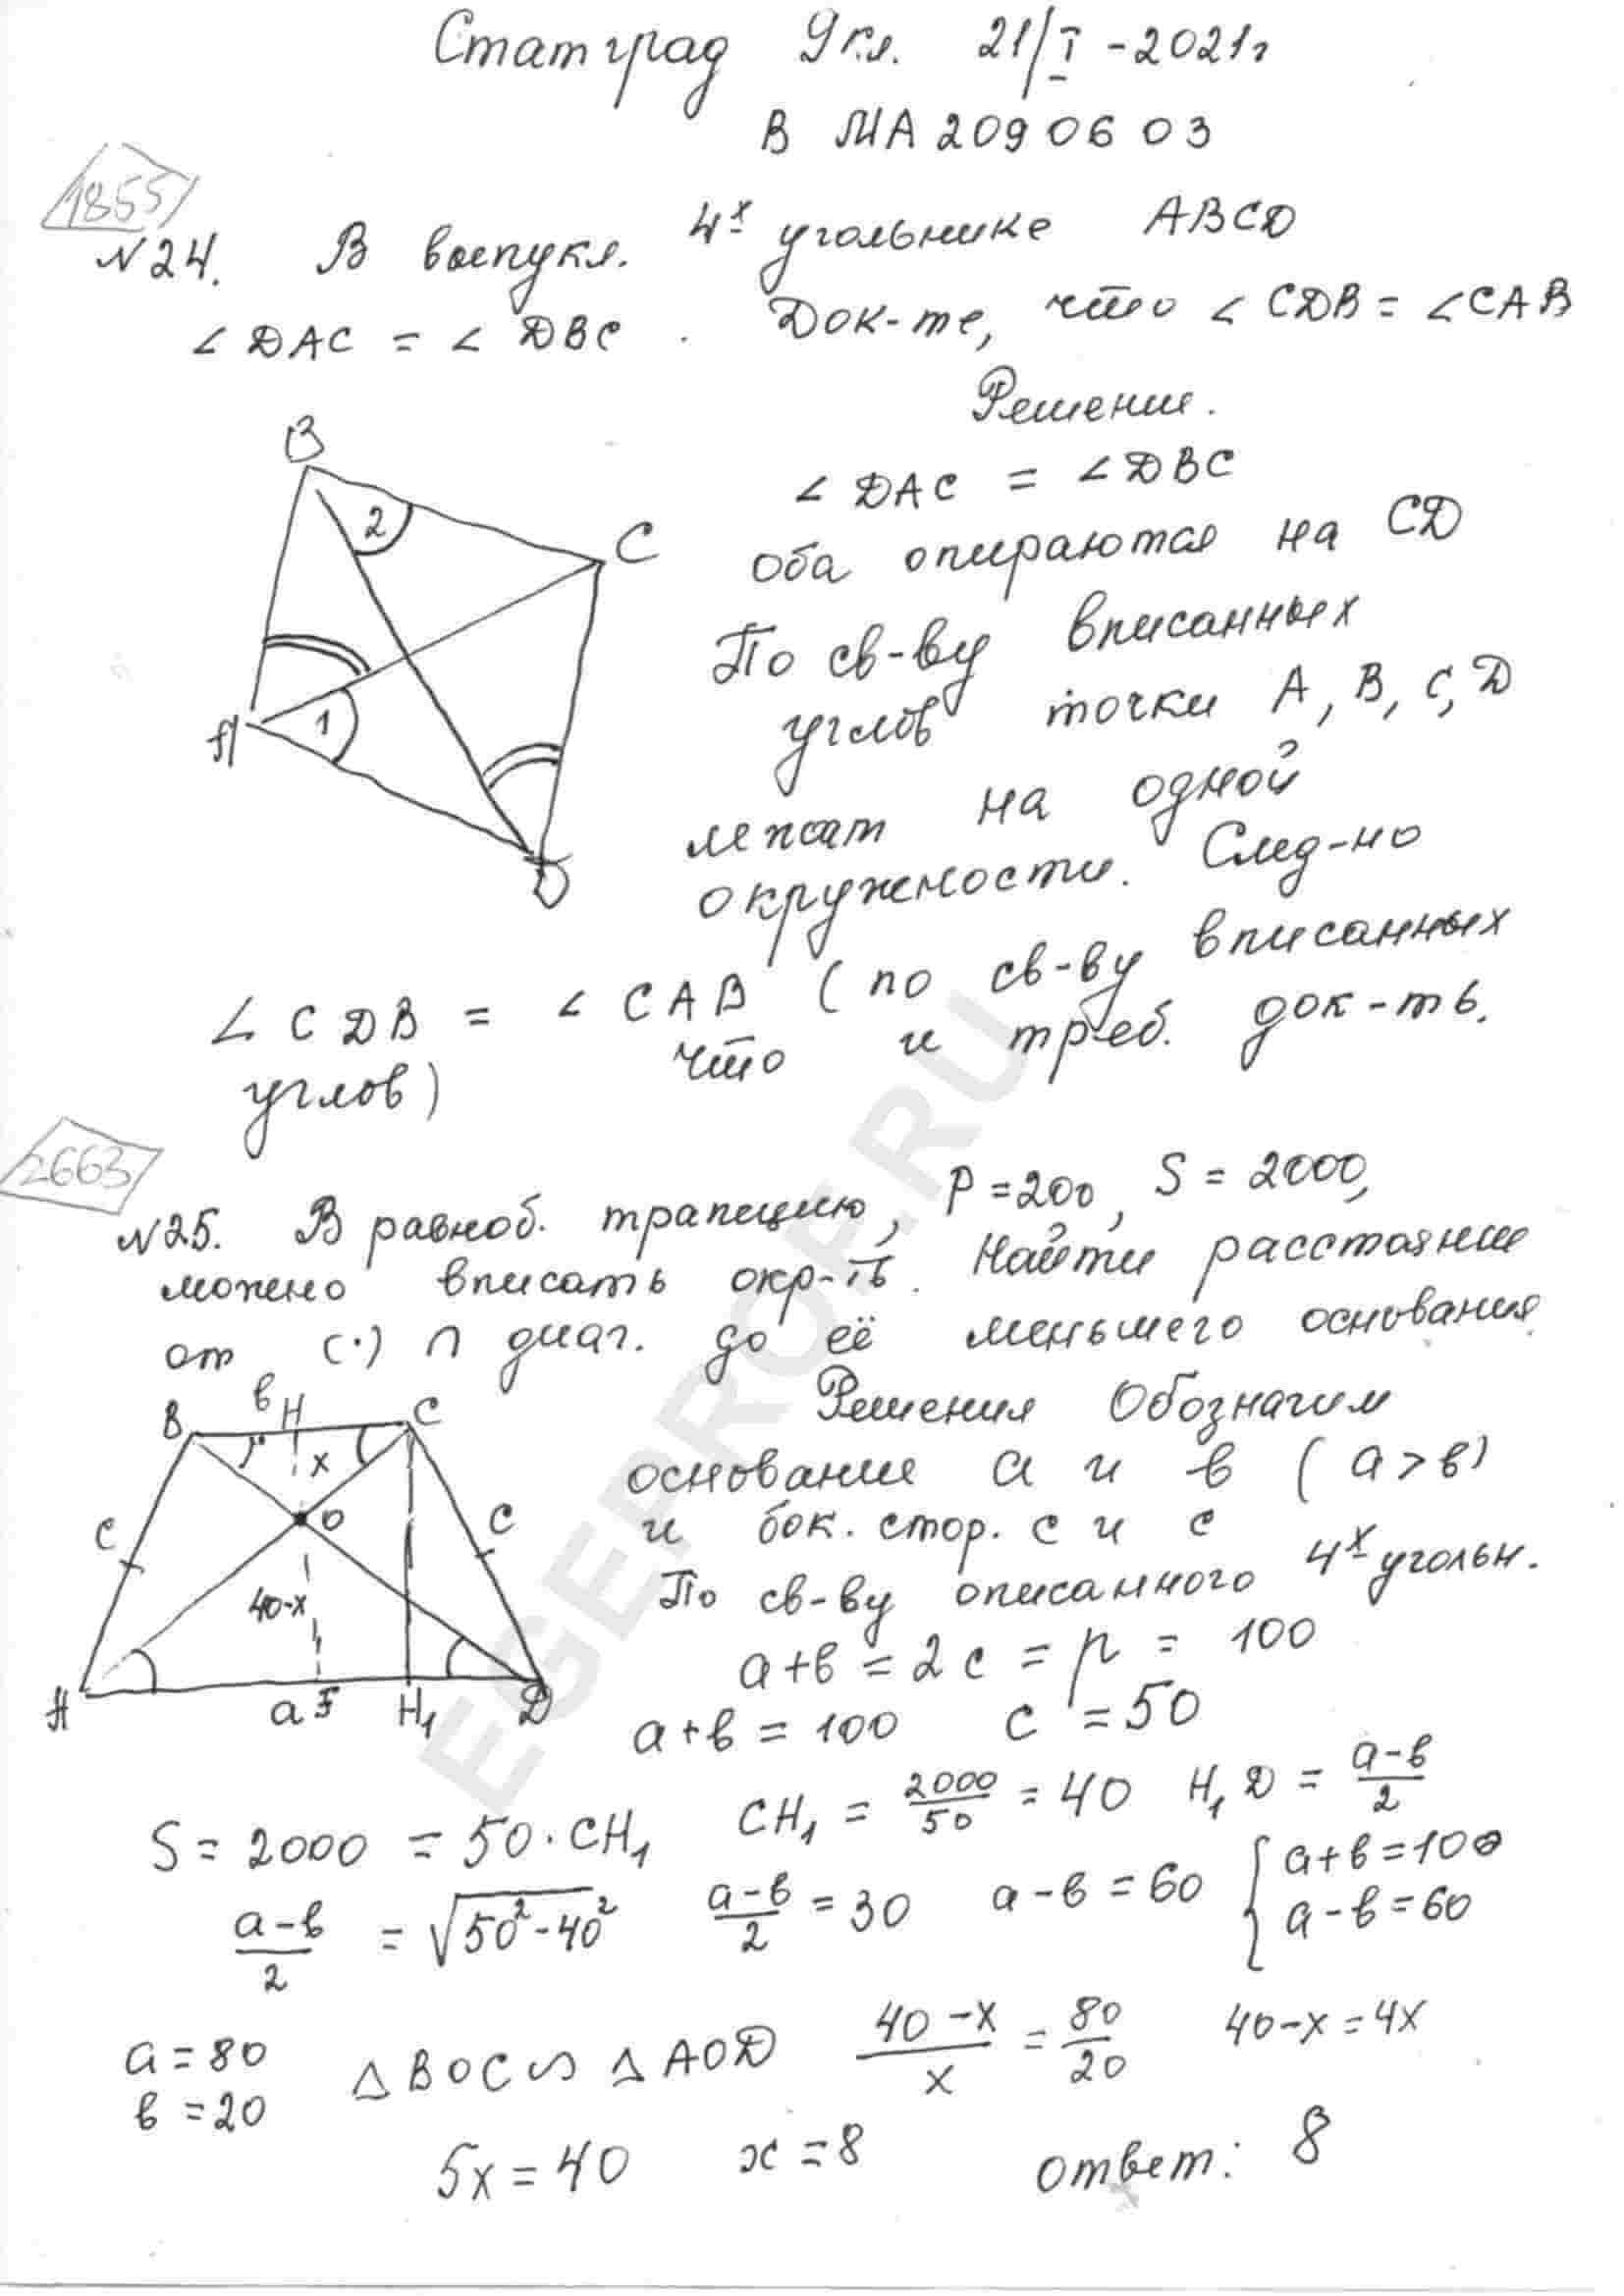 Статград 9кл. 21/I-2021г
В МА2090603
1855
№24. В выпукл. 4х угольнике ABCD
∠DAC = ∠DBC. Док-те, что ∠CDB = ∠CAB
Решение.
B
2
C
A
1
D
∠DAC = ∠DBC
оба опираются на CD
По св-ву вписанных
углов точки A, B, C, D
лежат на одной
окружности. След-но
∠CDB = ∠CAB (по св-ву вписанных
углов) что и треб. док-ть.
2663
№25. В равноб. трапецию, P=200, S=2000,
можно вписать окр-ть. Найти расстояние
от (·) ∩ диаг. до её меньшего основания
в
B H C
x
O
c c
40-x
A a F H₁ D
Решения Обозначим
основание a и в (a>в)
и бок. стор. c и c
По св-ву описанного 4х угольн.
a+в = 2c = p = 100
a+в = 100 c = 50
S = 2000 = 50·CH₁ CH₁ = 2000/50 = 40 H₁D = (a-в)/2
(a-в)/2 = √(50²-40²) (a-в)/2 = 30 a-в = 60 { a+в=100
a-в=60
a=80
в=20 △BOC∽△AOD (40-x)/x = 80/20 40-x=4x
5x=40 x=8 ответ: 8
EGEPROF.RU